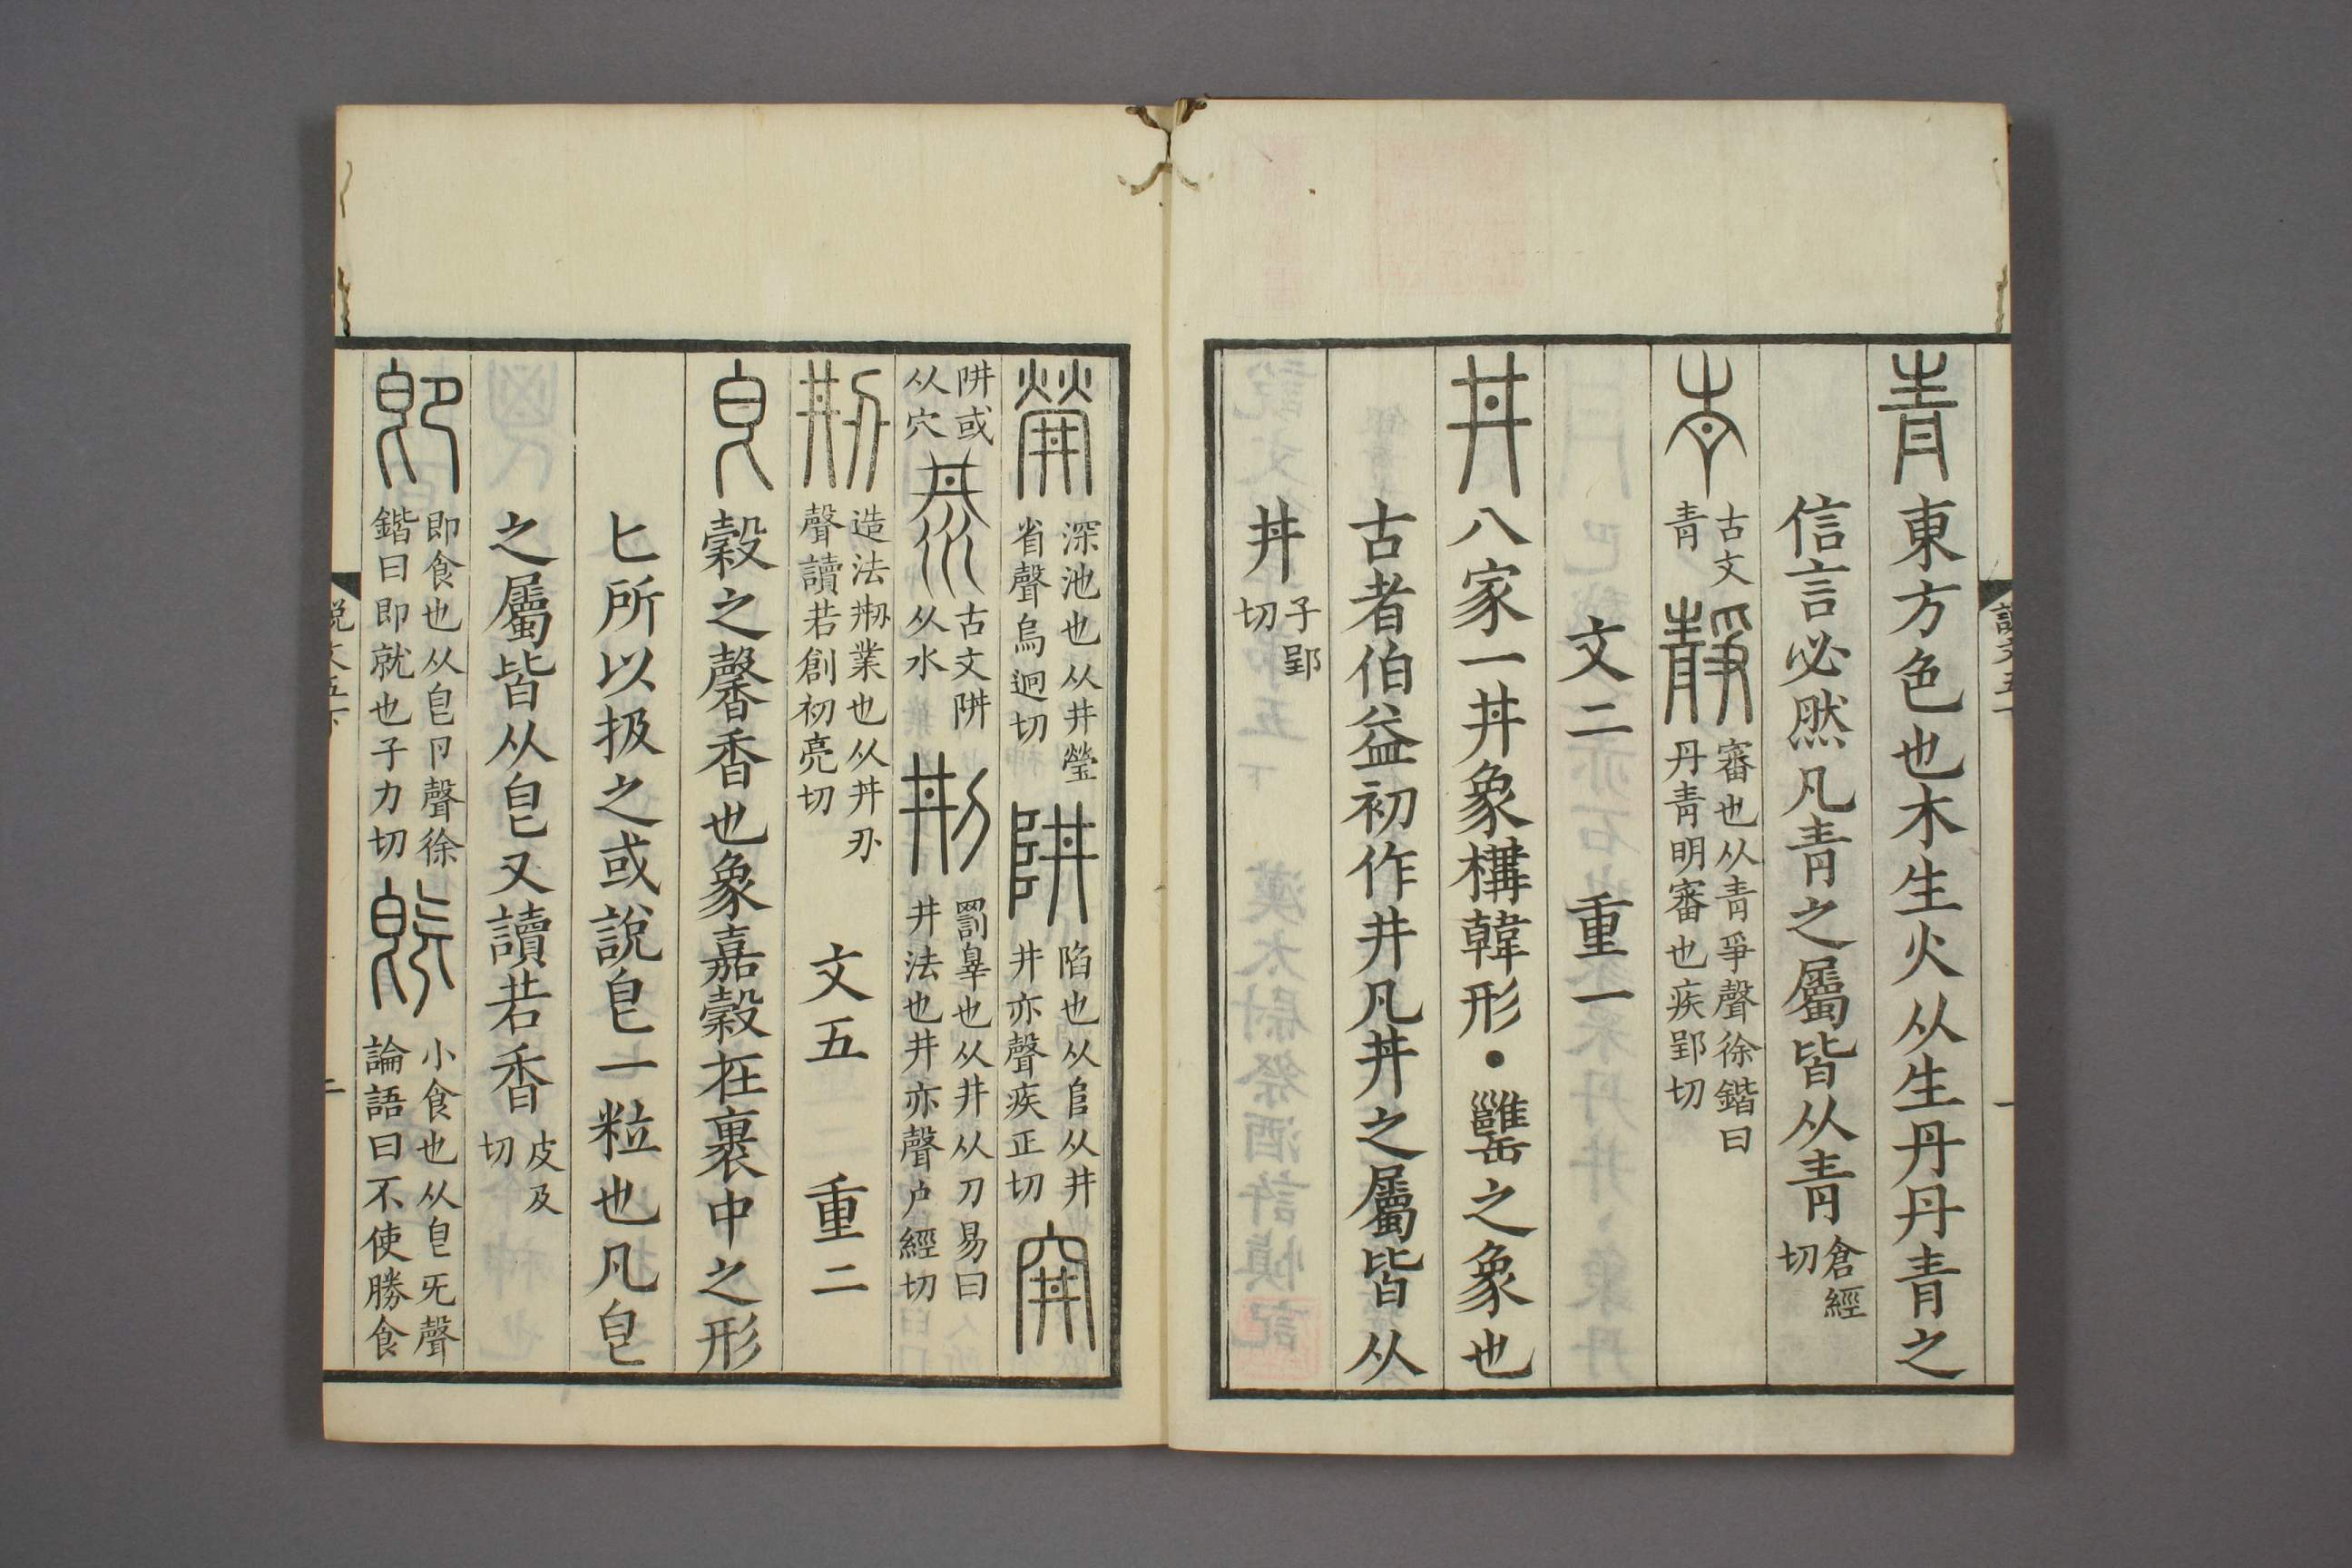 靑東方色也木生火从生丹丹青之
信言必然凡青之屬皆从青倉經切
古文青靜審也从青爭聲徐鍇曰丹青明審也疾郢切
文二 重一
丼八家一丼象構韓形•𦉥之象也
古者伯益初作井凡丼之屬皆从
丼子郢切
深池也从井瑩省聲烏迥切阱陷也从𨸏从井井亦聲疾正切穽
阱或从穴古文阱从水㓝罰辠也从井从刀易曰井法也井亦聲户經切
刱造法刱業也从丼刅聲讀若創初亮切 文五 重二
皀穀之馨香也象嘉穀在裹中之形
匕所以扱之或說皀一粒也凡皀
之屬皆从皀又讀若香皮及切
卽即食也从皀卪聲徐鍇曰即就也子力切旣小食也从皀旡聲論語曰不使勝食
說文五下
二